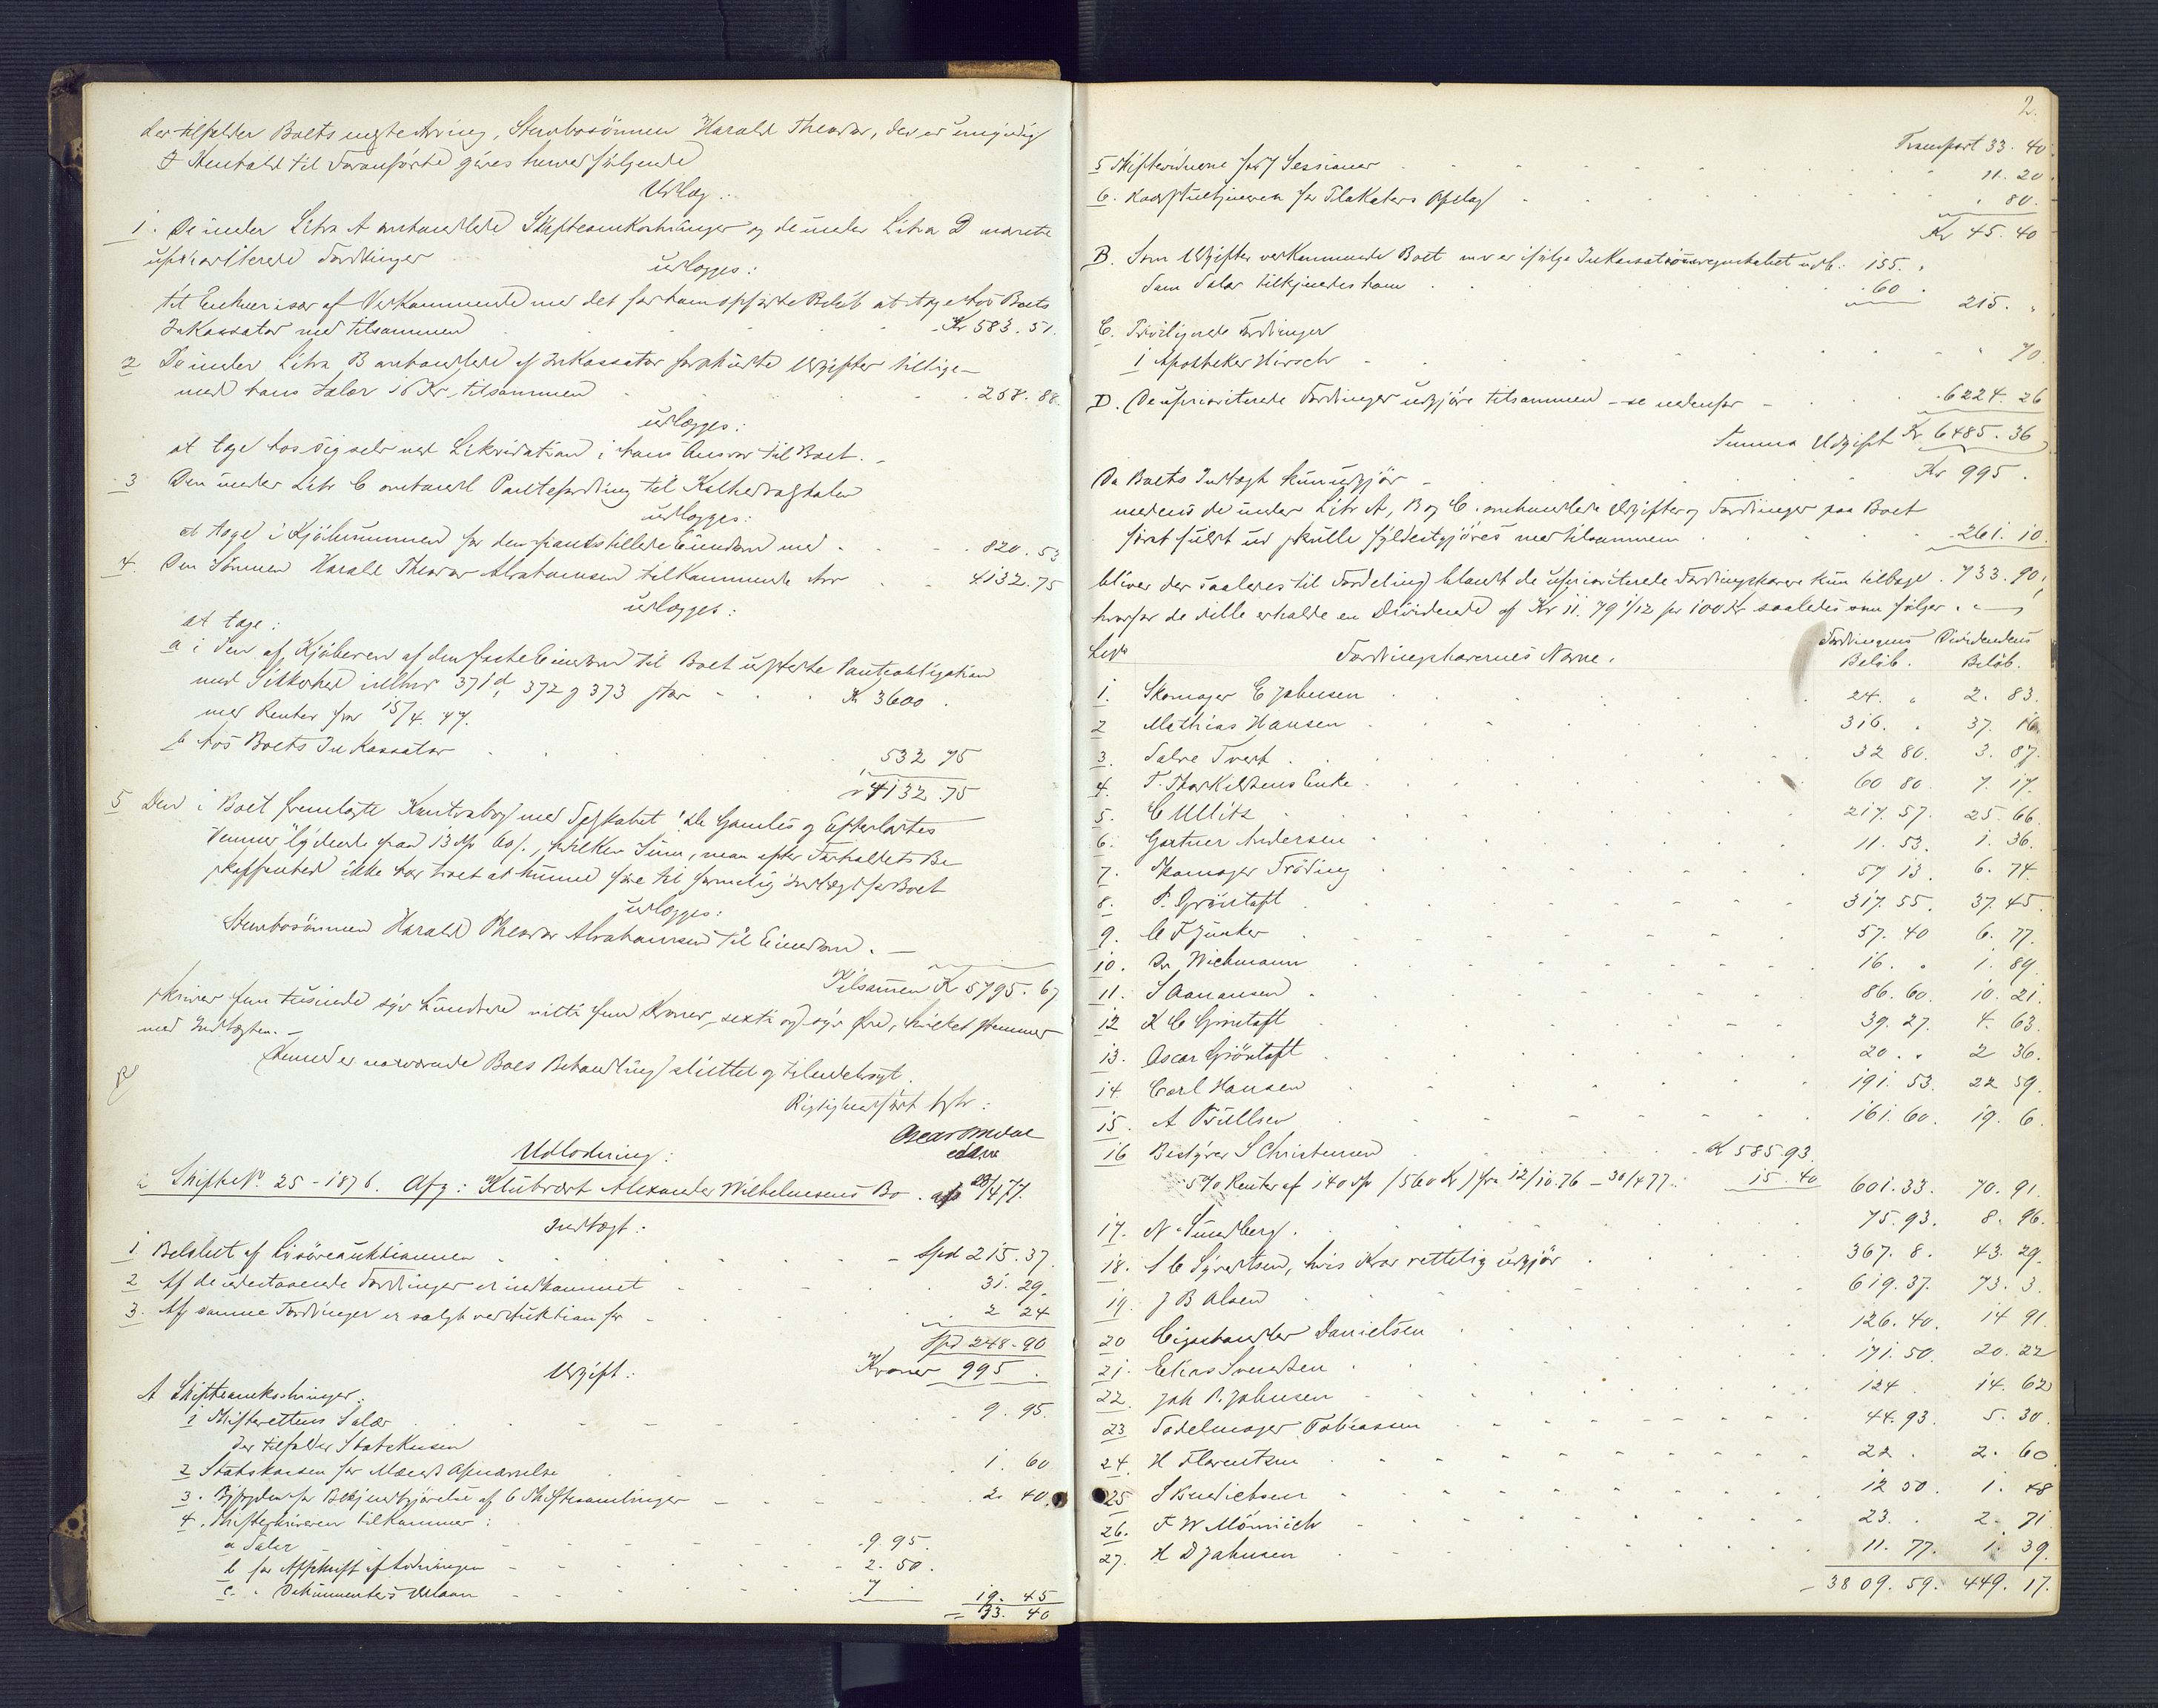 der tilfalder Boets eneste Arving, Stervbosönnen Harald Theodor, der er umyndig
I Henhold til Foranförte göres herved fölgende
Udlæg:
1. De under Litra A omhandlede Skifteomkostninger og de under Litra D anmeldte
uprioriterede Fordringer
udlægges:
til Enhver især af Vedkommende med det for ham opförte Belöb at tage hos Boets
Inkassator med tilsammen Kr 583.51.
2 De under Litra B omhandlede af Inkassator forskudte Udgifter tillige
med hans Salær 16 Kr, tilsammen 258.88.
udlægges:
at tage hos sig selv ved Likvidation i hans Ansvar til Boet.
3 Den under Litr C omhandl Pantefordring til Kathedralskolen
udlægges:
at tage i Kjöbesummen for den pantstillede Eiendom med 820.53
4. Den Sönnen Harald Theodor Abrahamsen tilkommende Arv 4132.75
udlægges:
at tage:
a i den af Kjöberen af den faste Eiendom til Boet udstedte Panteobligation
med Sikkerhed i 371 d, 372 & 373 stor Kr 3600.
med Renter fra 15/4 77.
b hos Boets Inkassator 532 75
4132.75
5 Den i Boet fremlagte Kontrabog med Selskabet "de Gamles og Efterladtes
Venner" lydende paa 13 Sp 60 s., hvilken Sum, man efter Forholdets Be-
skaffenhed ikke har troet at kunne före til formelig Indtægt for Boet
udlægges:
Stervbosönnen Harald Theodor Abrahamsen til Eiendom.
Tilsamen Kr 5795.67
skriver fem tusinde syv hundrede nitti fem Kroner, sexti og syv Öre, hvilket stemmer
med Indtægten.
Hermed er nærværende Boes Behandling sluttet og tilendebragt.
Rigtig indfört

Udlodning:
2 Skifte No. 25 - 1876. Afg: Klubvært Alexander Wilhelmsens Bo. 28/4 77.
Indtægt:
1 Belöbet af Lösöreauktionen Spd 215.37.
2 Af de udestaaende Fordringer er indkommet 31. 29.
3. Af samme Fordringer er solgt ved Auktion for 2 24
Spd 248.90
Kroner 995.
Udgift:
A Skifteomkostninger.
1 Skifterettens Salær 9. 95.
der tilfalder Statskassen
2 Statskassen for Mænds Opnævnelse 1. 60
3. Byfogden for Bekjendtgjörelse af 6 Skiftesamlinger 2. 40.
4. Skifteskriveren tilkommer:
a Salær 9 95.
b for Afskrift af Lodningen 2. 50.
c " Dokumenters Udlaan 7 . 19. 45
33. 40
2.
Transport 33. 40.
5 Skiftevidnerne for 7 Sessioner 11. 20.
6. Raadstuetjeneren for Plakaters Opslag " 80.
Kr 45. 40
B. Som Udgifter vedkommende Boet m v er ifölge Inkassationsregnskabet udb: 155. "
Som Salær tilkjendes ham 60 . 215. "
C. Privilegerede Fordringer
1 Apotheker Hirsch " 70.
D. De uprioriterede Fordringer udgjöre tilsammen - se nedenfor - 6224. 26
Summa Udgift Kr 6485. 36
Da Boets Indtægt kun udgjör Kr 995.
medens de under Litr A, B og C. omhandlede Udgifter og Fordringer paa Boet
först fuldt ud skulle fyldestgjöres med tilsammen 261. 10.
bliver der saaledes til Fordeling blandt de uprioriterede Fordringshavere kun tilbage 733. 90,
hvorfor de ville erholde en Dividende af Kr 11. 79 1/12 pr 100 Kr saaledes som fölger
Lsp Fordringshavernes Navne. Fordringens Belöb. Dividendens Belöb.
1. Skomager C Johnsen 24. " 2. 83.
2 Mathias Hansen 316. " 37. 16
3. Salve Tvert 32 80. 3. 87.
4. T. Thorkildsens Enke 60 80. 7. 17.
5. C Ullitz 217. 57. 25. 66.
6. Gartner Andersen 11. 53. 1. 36.
7. Skomager Fröding 57 13. 6. 74.
8. P. Gröntoft 317. 55. 37. 45.
9. C F Junker 57. 40 6. 77.
10. Dr Wichmann 16. " 1. 89.
11. S Aanonsen 86. 60. 10. 21.
12 K C Gröntoft 39. 27. 4. 63.
13. Oscar Gröntoft 20. " 2 36.
14. Carl Hansen 191. 53. 22 59.
15. A Trullsen 161. 60. 19. 6.
16 Bestyrer S Christensen Kr 585 93.
5 % Renter af 140 Sp (560 Kr) fra 12/10 76 - 30/4 77. 15. 40 601. 33. 70. 91.
17. N. Sundberg. 75. 93. 8. 96.
18. A C Syvertsen, hvis Krav rettelig udgjör 367. 8. 43. 29.
19. J B Olsen 619. 37. 73. 3.
20 Cigarhandler Danielsen 126. 40. 14 91.
21. Elias Svendsen 171. 50. 20. 22
22. Joh P. Johnsen 124 . 14. 62
23 Sadelmager Tobiassen 44. 93. 5. 30.
24. H Florentzen 22 . 2. 60
25 S Benedictsen 12 50. 1. 48
26. F W Mömich 23. . 2. 71
27. H D Johnsen 11. 77. 1. 39.
3809. 59. 449. 17.